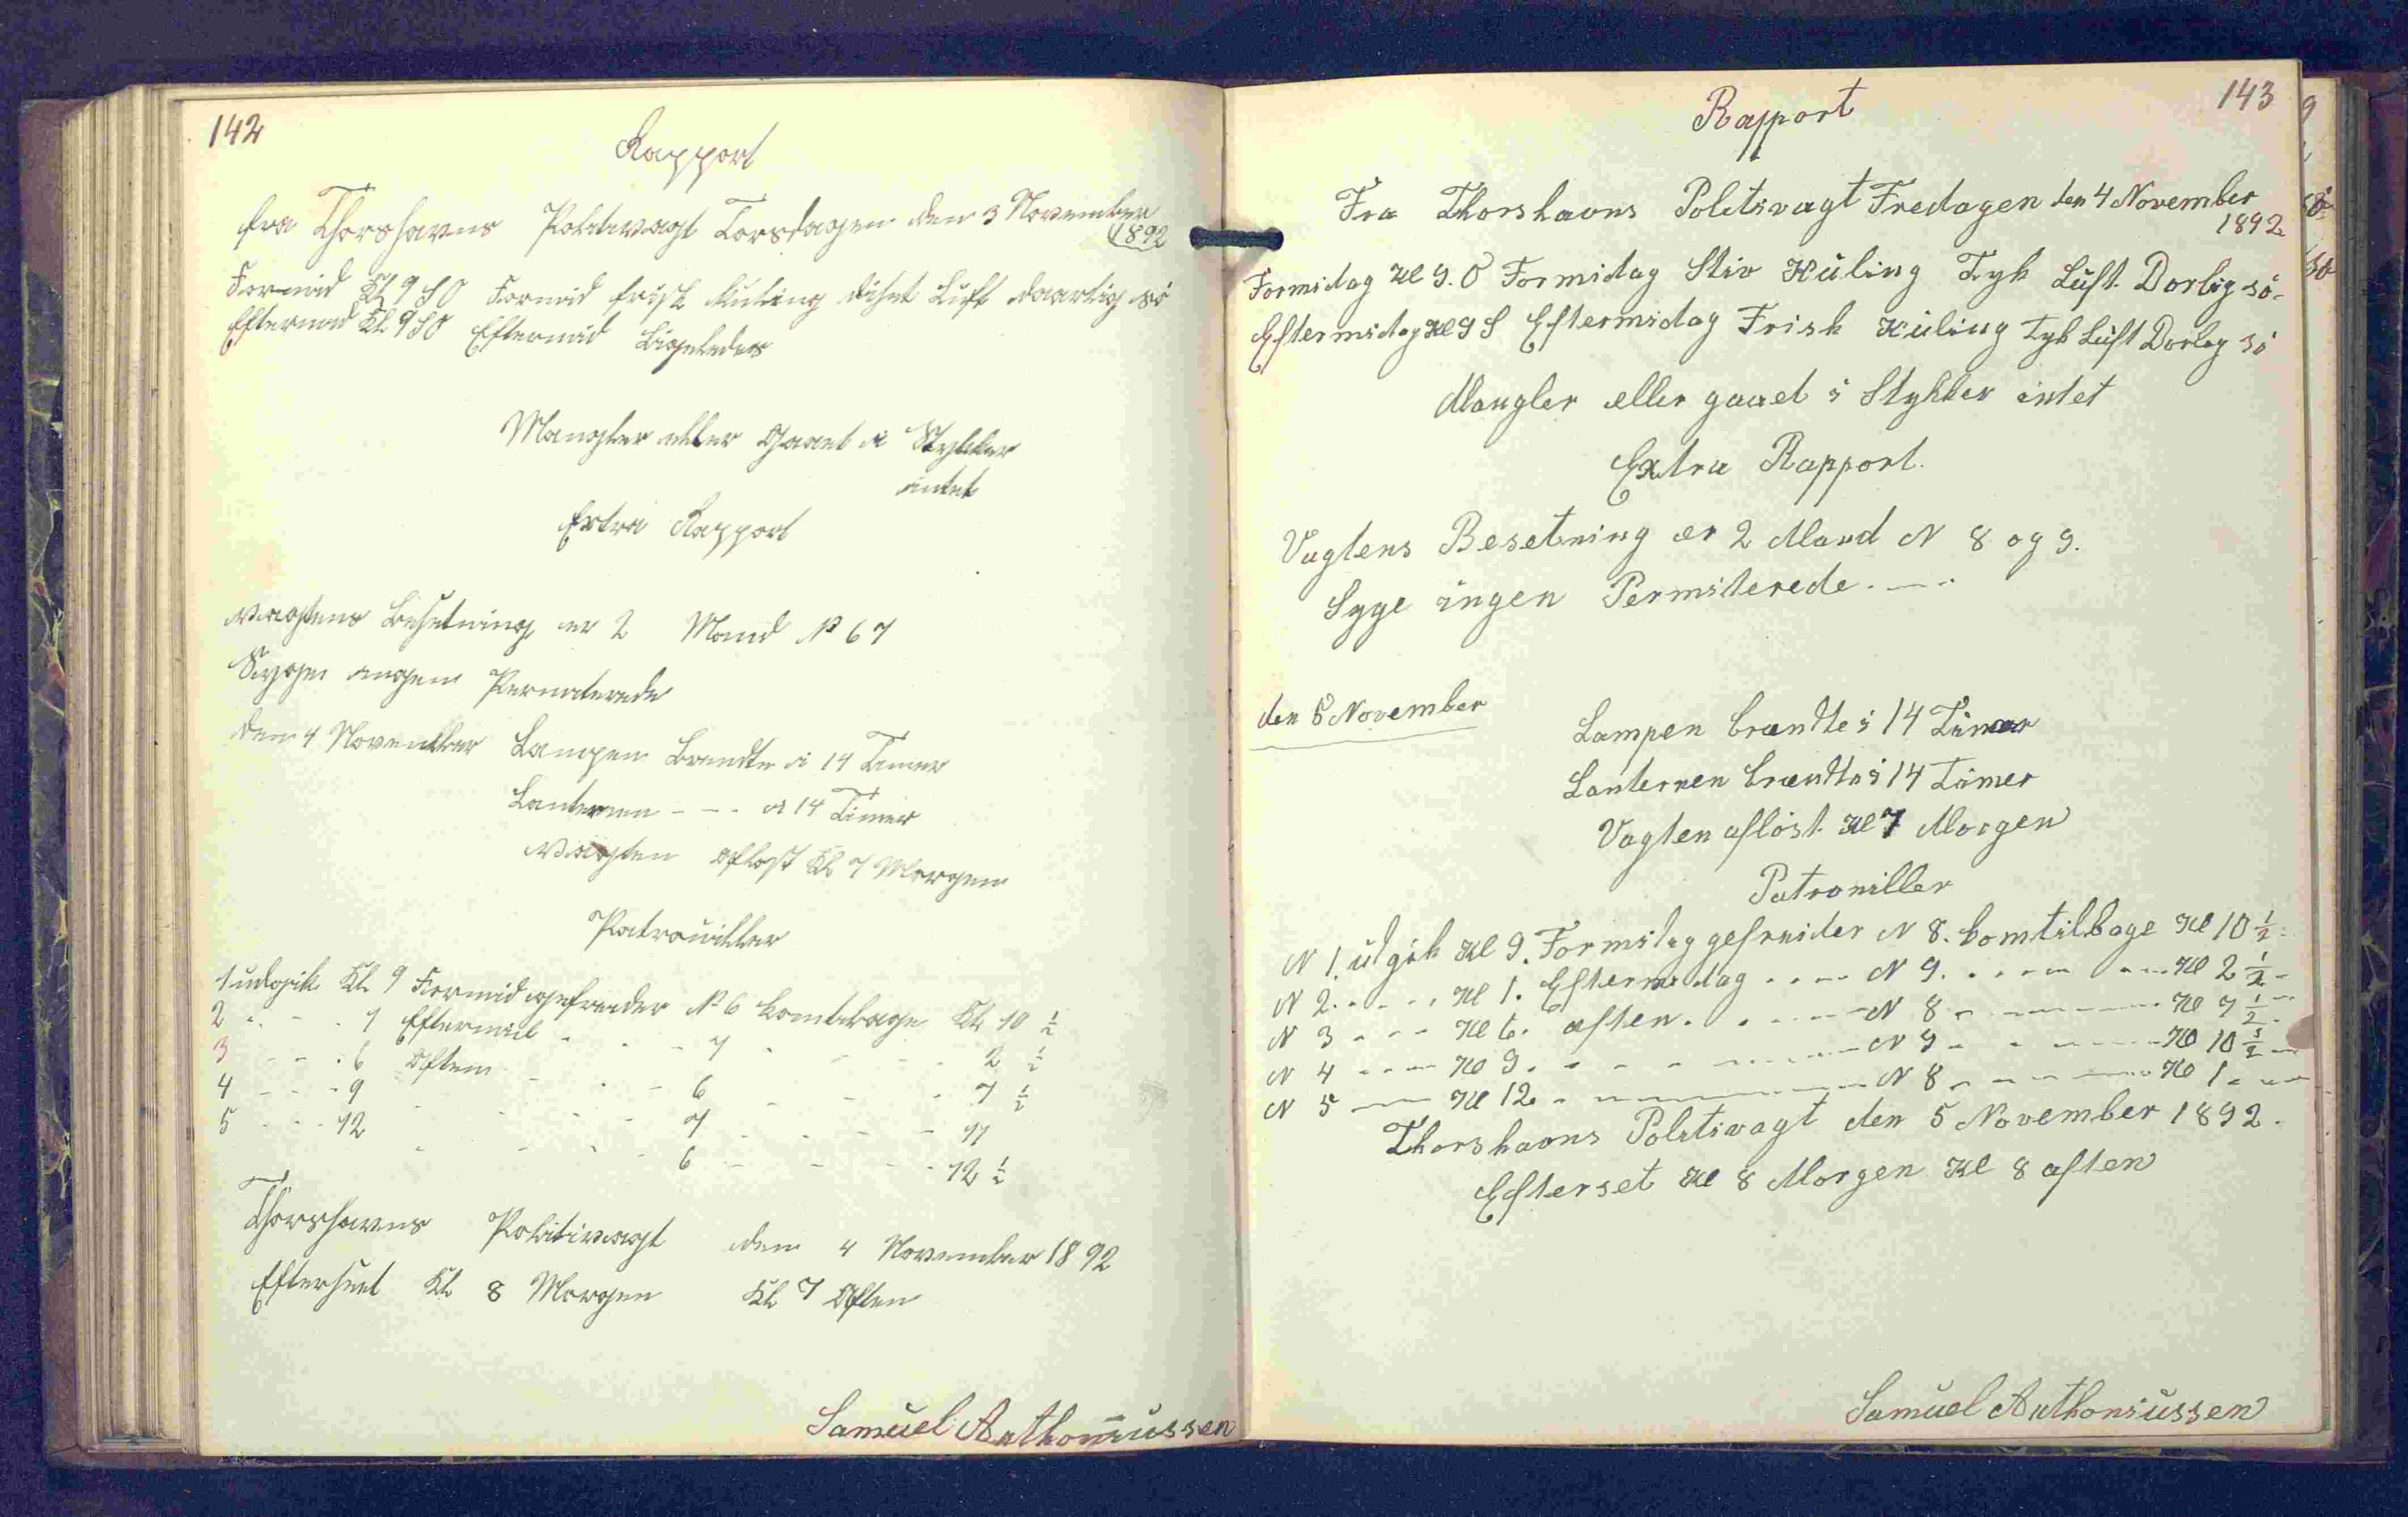 142
Rapport
fra Thorshavns Politivagt Torsdagen den 3 November
1892
Formid Kl 9 SO Formid frisk Kuling diset Luft daarlig sö
Eftermid Kl 9 SO Eftermid Ligeledes
Mangler eller Gaaet i Stykker
intet
Extra Rapport
Vagtens Besetning er 2 Mand N 6 7
Syge ingen Permiterede
den 4 November Lampen Brendte i 14 Timer
Lanternen - - - i 14 Timer
Vagten aflöst Kl 7 Morgen
Patrouiller
1 udgik Kl 9 Formid gefreider N 6 komtilbage Kl 10 ½
2 - - - 1 Eftermid - - - 7 - - - 2 ½
3 - - - 6 Aften - - - 6 - - - 7 ½
4 - - - 9 - - - 7 - - - 11
5 - - - 12 - - - 6 - - - 12 ½
Thorshavns Politivagt den 4 November 1892
Efterseet Kl 8 Morgen Kl 7 Aften
Samuel Anthoniussen
143
Rapport
Fra Thorshavns Politivagt Fredagen den 4 November
1892
Formidag Kl 9. O Formidag Stiv Kuling Tyk Luft. Dorlig sö-
Eftermidag Kl 9 S Eftermidag Frisk Kuling Tyk Luft Dorleg sö
Mangler eller gaaet i Stykker intet
Extra Rapport.
Vagtens Besetning er 2 Mand N 8 og 9.
Syge ingen Permiterede. - - -
den 5 November
Lampen brændte i 14 Timer
Lanternen brændte i 14 Timer
Vagten aflöst Kl 7 Morgen
Patroniller
N 1. udgik Kl 9. Formidag gefreider N 8. komtilbage Kl 10 ½
N 2. - - - Kl 1. Eftermidag - - - N 9. - - - Kl 2 ½ -
N 3 - - - Kl 6. aften. - - - N 8 - - - Kl 7 ½ -
N 4 - - - Kl 9. - - - N 9 - - - Kl 10 ½ -
N 5 - - - Kl 12. - - - N 8 - - - Kl 1 - - -
Thorshavns Politivagt den 5 November 1892.
Efterset Kl 8 Morgen Kl 8 aften
Samuel Anthoniussen